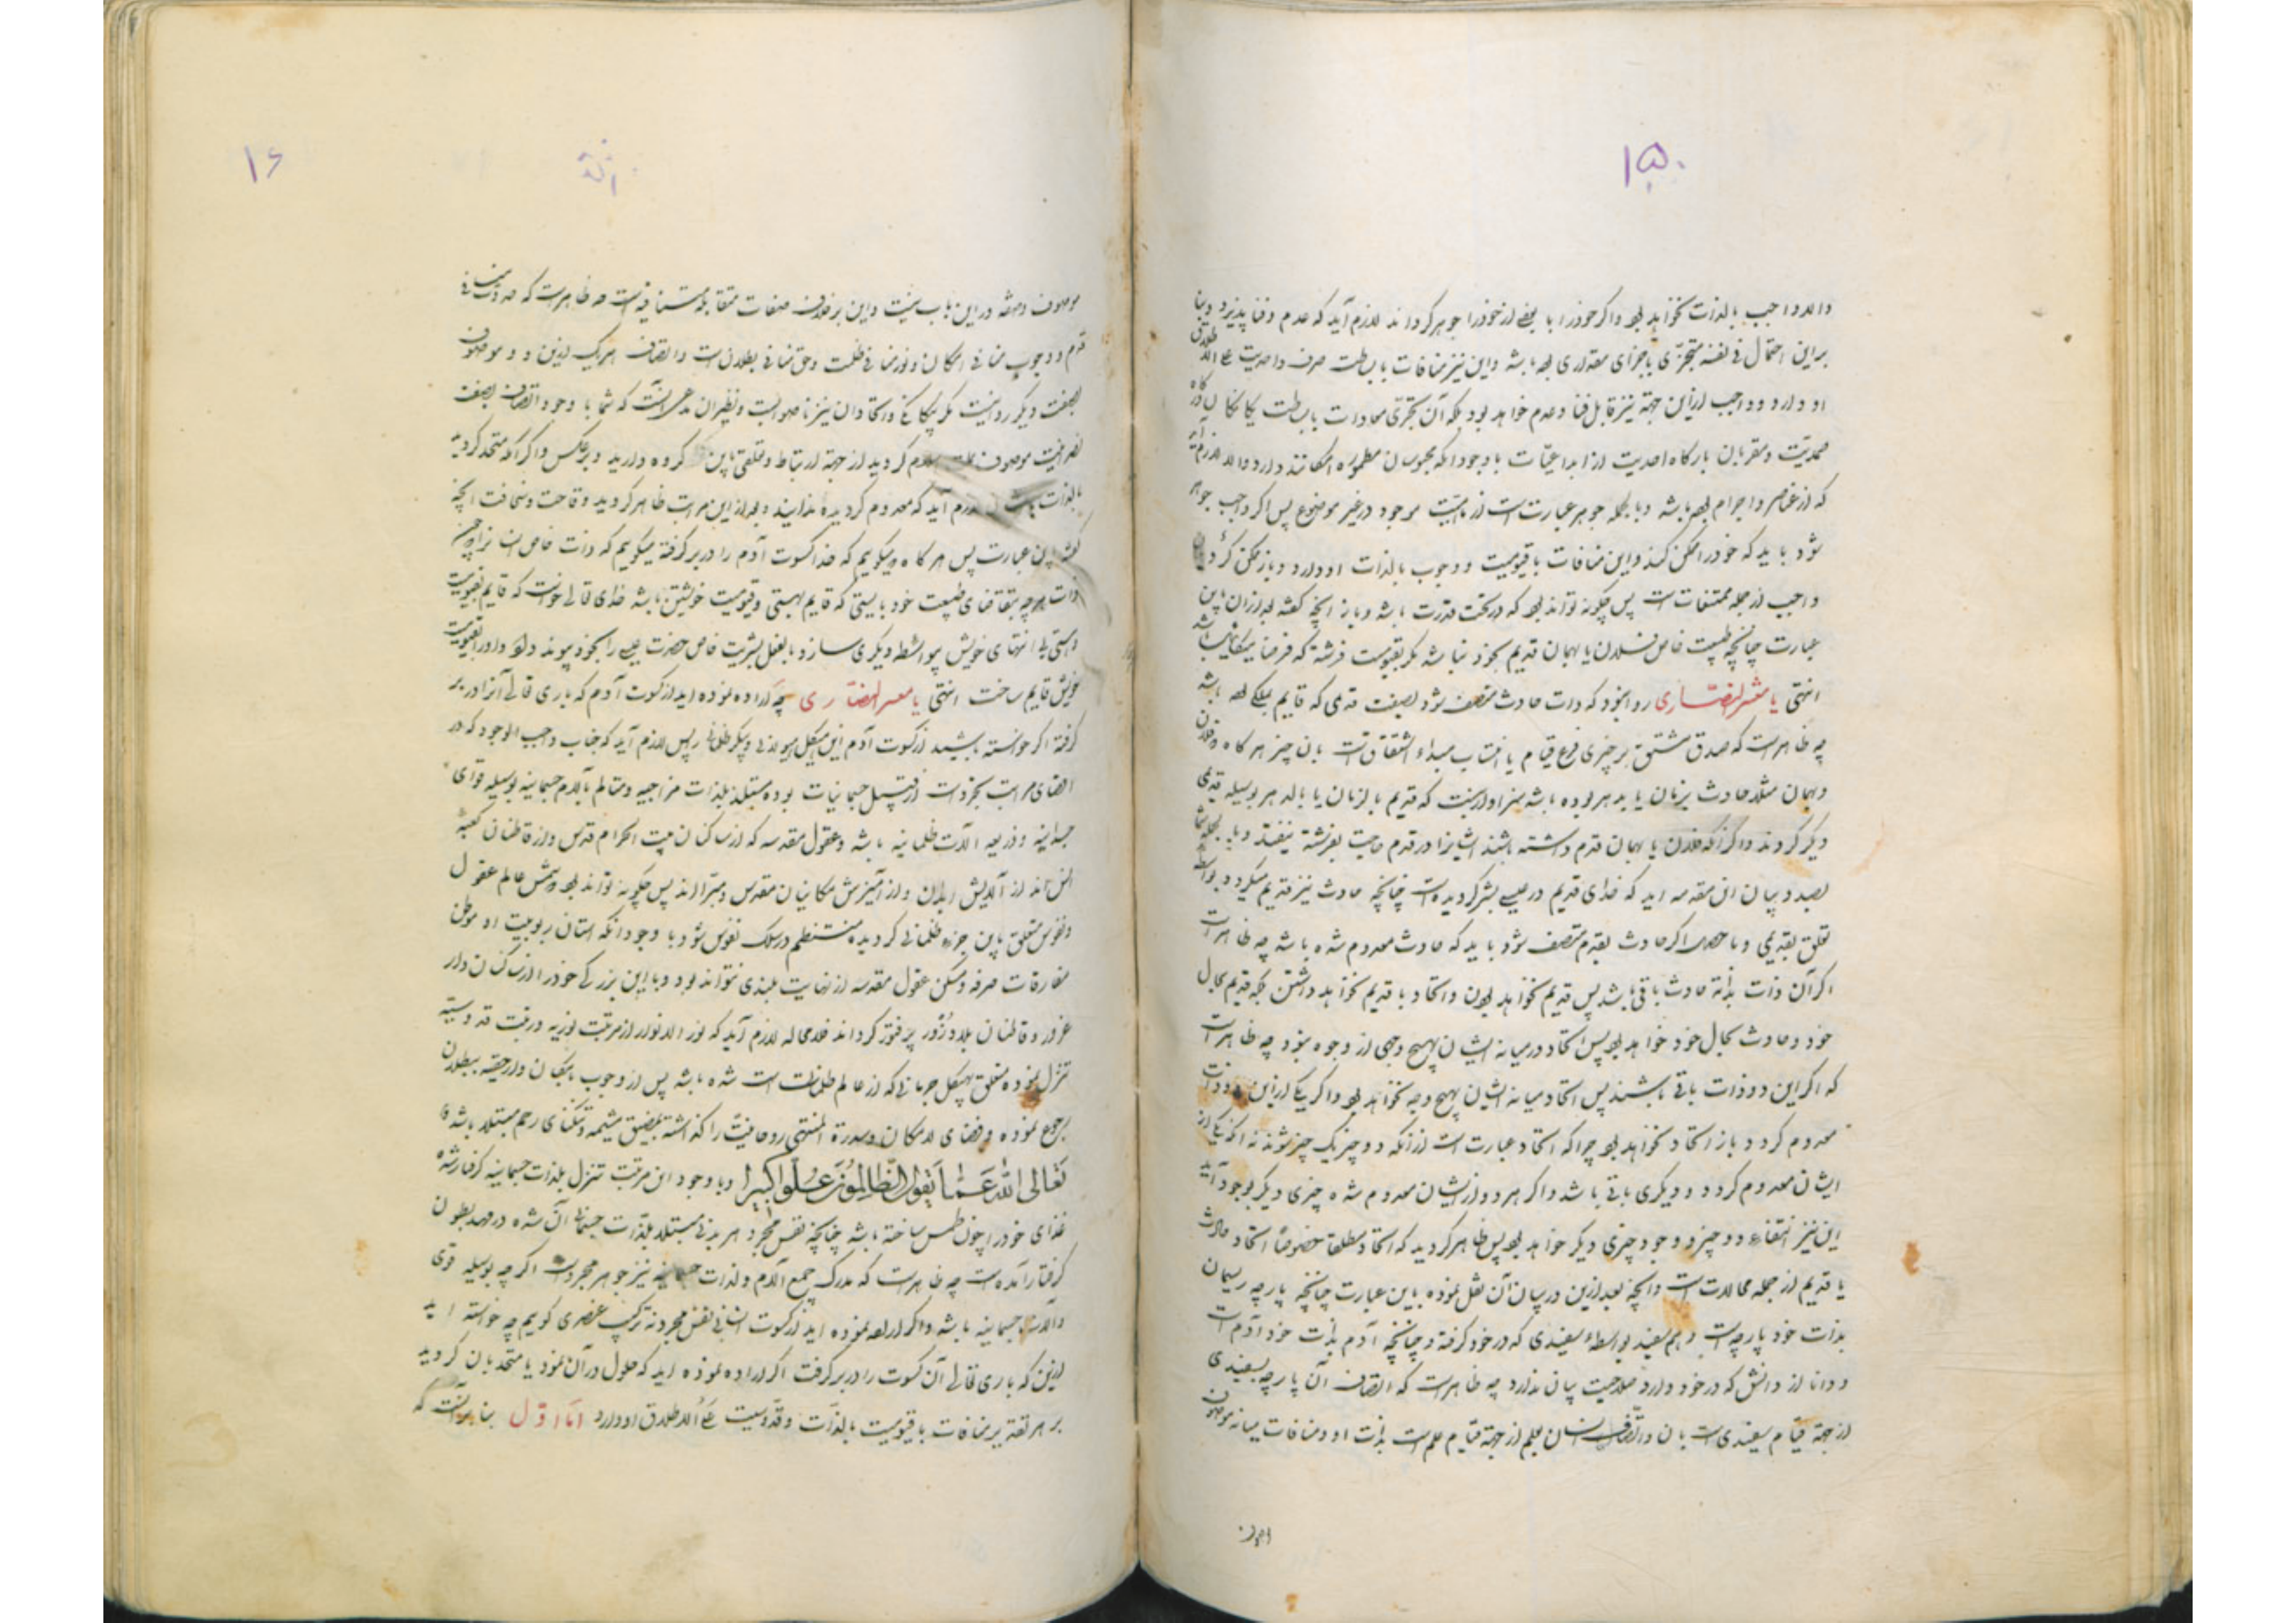 ۱۵
والا واجب بالذات نخواهد بود و اگر خود را با بعض از خود را جوهر گرداند لازم آید که عدم و فنا پذیرد و بنا
براین احتمال فی نفسه متجزی باجزای مقداری بوده باشد و این نیز منافات با بساطت صرف و احدیت علی الاطلاق
او دارد و واجب ازین جهة نیز قابل فنا و عدم خواهد بود بلکه آن تجزی معادات با بساطت
صمدیت و مقربان بارکاه احدیت از ابداعیات با وجود آنکه محبوسان مطموره امکانند دارد والا لازم آید
که از عناصر و اجرام بوده باشد و بالجمله جوهر عبارتست از ماهیت موجود در غیر موضوع پس اگر واجب جوهر
شود باید که خود را ممکن کند و این منافات با قیومیت و وجوب بالذات او دارد و باز ممکن
واجب از جمله ممتنعات است پس چگونه تواند بود که در تحت قدرت باشد و باز آنچه گفته بعد از آن باین
عبارت چنانچه طبیعت خاص فلان یا بهمان قدیم بخود نباشد مگر بقیومیت فرشته که فرضا
انتهی یا معشر النصاری روا نبود که ذات حادث متصف شود بصفت قدمی که قایم بملکی بوده باشد
چه ظاهرست که صدق مشتق بر چیزی فرع قیام یا انتساب مبداء اشتقاقست بان چیز هر گاه فلان
و بهمان مثلا حادث بزمان یا بدهر بوده باشد سزاوار نیست که قدیم بالزمان یا بالدهر بوسیله قدمی
دیگر گردند و اگر آنکه فلان یا بهمان قدم داشته باشند ایشانرا در قدم حاجت بفرشته نیفتد و بالجمله شما
بصدد بیان این مقدمه اید که خدای قدیم در عیسی بشر گردیده است چنانچه حادث نیز قدیم میگردد بواسطه
تعلق بقدیمی و اگر حادث بقدم متصف شود باید که حادث معدوم شده باشد چه ظاهرست
اگر آن ذات بذاته حادث باقی باشد پس قدیم نخواهد بودن و اتحاد با قدیم نخواهد داشتن بلکه قدیم بحال
خود و حادث بحال خود خواهد بود پس اتحاد در میانه ایشان بهیچ وجهی از وجوه نبود چه ظاهرست
که اگر این دو ذات باقی باشند پس اتحاد میانه ایشان بهیچ وجه نخواهد بود و اگر یکی ازین دو ذات
معدوم گردد باز اتحاد نخواهد بود چرا که اتحاد عبارت است از آنکه دو چیز یک چیز شوند نه آنکه یکی از
ایشان معدوم گردد و دیگری باقی باشد و اگر هر دو از ایشان معدوم شده چیزی دیگر بوجود آید
این نیز انتفاء دو چیز و وجود چیزی دیگر خواهد بود پس ظاهر گردید که اتحاد مطلقا خصوصا اتحاد حادث
با قدیم از جمله محالات است و آنچه بعد ازین در بیان آن نقل نموده باین عبارت چنانچه پارچه ریسمان
بذات خود پارچه است و هم سفید بواسطه سفیدی که در خود گرفته و چنانچه آدم بذات خود آدم است
و دانا از دانش که در خود دارد صلاحیت بیان ندارد چه ظاهرست که اتصاف آن پارچه بسفیدی
از جهة قیام سفیدی است بان و اتصاف انسان بعلم از جهة قیام علم است بذات او و منافات میانه موصوف
۱۶
موصوف و صفة در این باب نیست و این بر خلاف صفات متقابله متنافیه است چه ظاهرست که حدوث منافی
قدم و وجوب منافی امکان و نور منافی ظلمت و حق منافی بطلان است و اتصاف هر یک ازین دو موصوف
بصفت دیگر روا نیست مگر بیگانگی و اتحاد آن نیز ناصوابست و که شما با وجود اتصاف بصفت
نصرانیت موصوف گردید از جهة ارتباط و تعلقی باین گروه دارید و بر عکس و اگر آنکه متحد گردید
بالذات لازم آید که معدوم گردیده و بعد از این مراتب ظاهر گردید وقاحت و سخافت آنچه
گفته باین عبارت پس هر گاه میگویم که خدا کسوت آدم را در بر گرفته میگویم که ذات خاص
ذات هر چه بتقاضای طبیعت خود بایستی که قایم بهستی و قیومیت خویشتن باشد خدای تعالی خواست که قایم بقیومیت
و هستی بی انتهای خویش بواسطه دیگری سازد بالفعل بشریت خاص حضرت عیسی را بخود پیوند داد و او را بقیومیت
خویش قایم ساخت انتهی یا معشر النصاری چه اراده نموده اید از کسوت آدم که باری تعالی آنرا در بر
گرفته اگر خواسته باشید از کسوت آدم این هیکل هیولانی و پیکر ظلمانی پس لازم آید که جناب واجب الوجود که در
اقصای مراتب تجرد است از قبیل جسمانیات بوده مستلذ بلذات مزاجیه و متالم بآلام جسمانیه بوسیله قوای
جسدانیه و ذریعه آلات ظلمانیه باشد و عقول مقدسه که از ساکنان بیت الحرام قدس و از قاطنان کعبه
انس اند از آلایش ابدان و از آمیزش مکانیان مقدس و مبرا اند پس چگونه تواند بود شمس عالم عقول
و نفوس متعلق باین جرم ظلمانی گردیده منتظم در سلک نفوس شود با وجود آنکه آستان ربوبیت او موطن
مفارقات صرفه و مسکن عقول مقدسه از نهایت بلندی نتواند بود و با این بزرگی خود را از ساکنان دار
غرور و قاطنان بلاد زور پر فتور گرداند فلامحاله لازم آید که نور الانوار از مرتبت نوریه و رتبت قدوسیه
تنزل نموده متعلق بهیکل جرمانی که از عالم ظلمات است شده باشد پس از وجوب بامکان و از حقیه ببطلان
رجوع نموده و فضای لامکان و سدرة المنتهی روحانیت را گذاشته بمضیق مشیمه و تنگنای رحم مبتلا باشد
تَعَالَی اللهُ عَمَّا یَقُولُ الظَّالِمُونَ عُلُوًّا کَبِیرًا و با وجود این مرتبت تنزل بلذات جسمانیه گرفتار شده
غذای خود را خون طمس ساخته باشد چنانچه نفس مجرد هر بدنی مبتلا بلذات جسمانی آن شده در مهد بطون
گرفتار آمده است چه ظاهرست که مدرک جمیع آلام و لذات جسمانیه نیز جوهر مجرد است اگر چه بوسیله قوی
و آلات جسمانیه باشد و اگر اراده نموده اید از کسوت انسانی نفس مجرد نه ترکیب عنصری گویم چه خواسته اید
ازین که باری تعالی آن کسوت را در بر گرفت اگر اراده نموده اید که حلول در آن نمود یا متحد بان گردید
بر هر تقدیر منافات با قیومیت بالذات و قدوسیت علی الاطلاق او دارد اما اول بنا بر آنست که